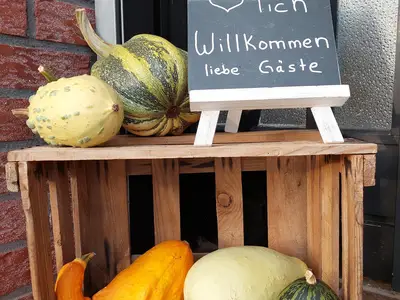 lich
Willkommen
liebe Gäste